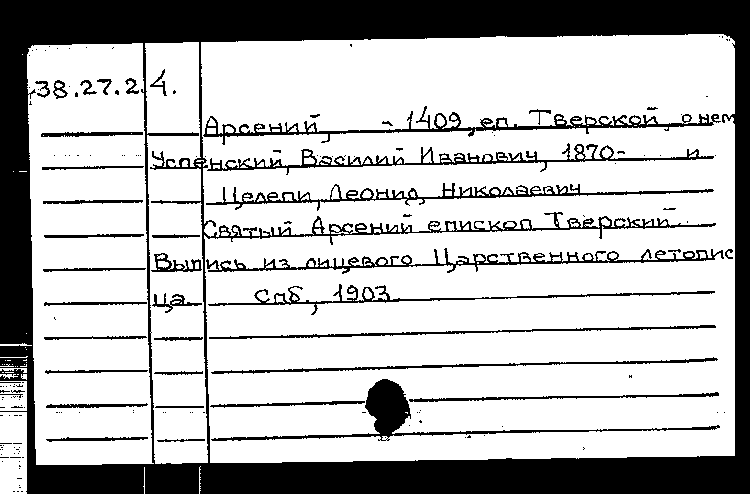 38.27.2.4.
Арсений, - 1409, еп. Тверской, о нем
Успенский, Василий Иванович, 1870- и
Целепи, Леонид Николаевич
Святый Арсений епископ Тверский.
Выпись из лицевого Царственного летопис
ца Спб., 1903